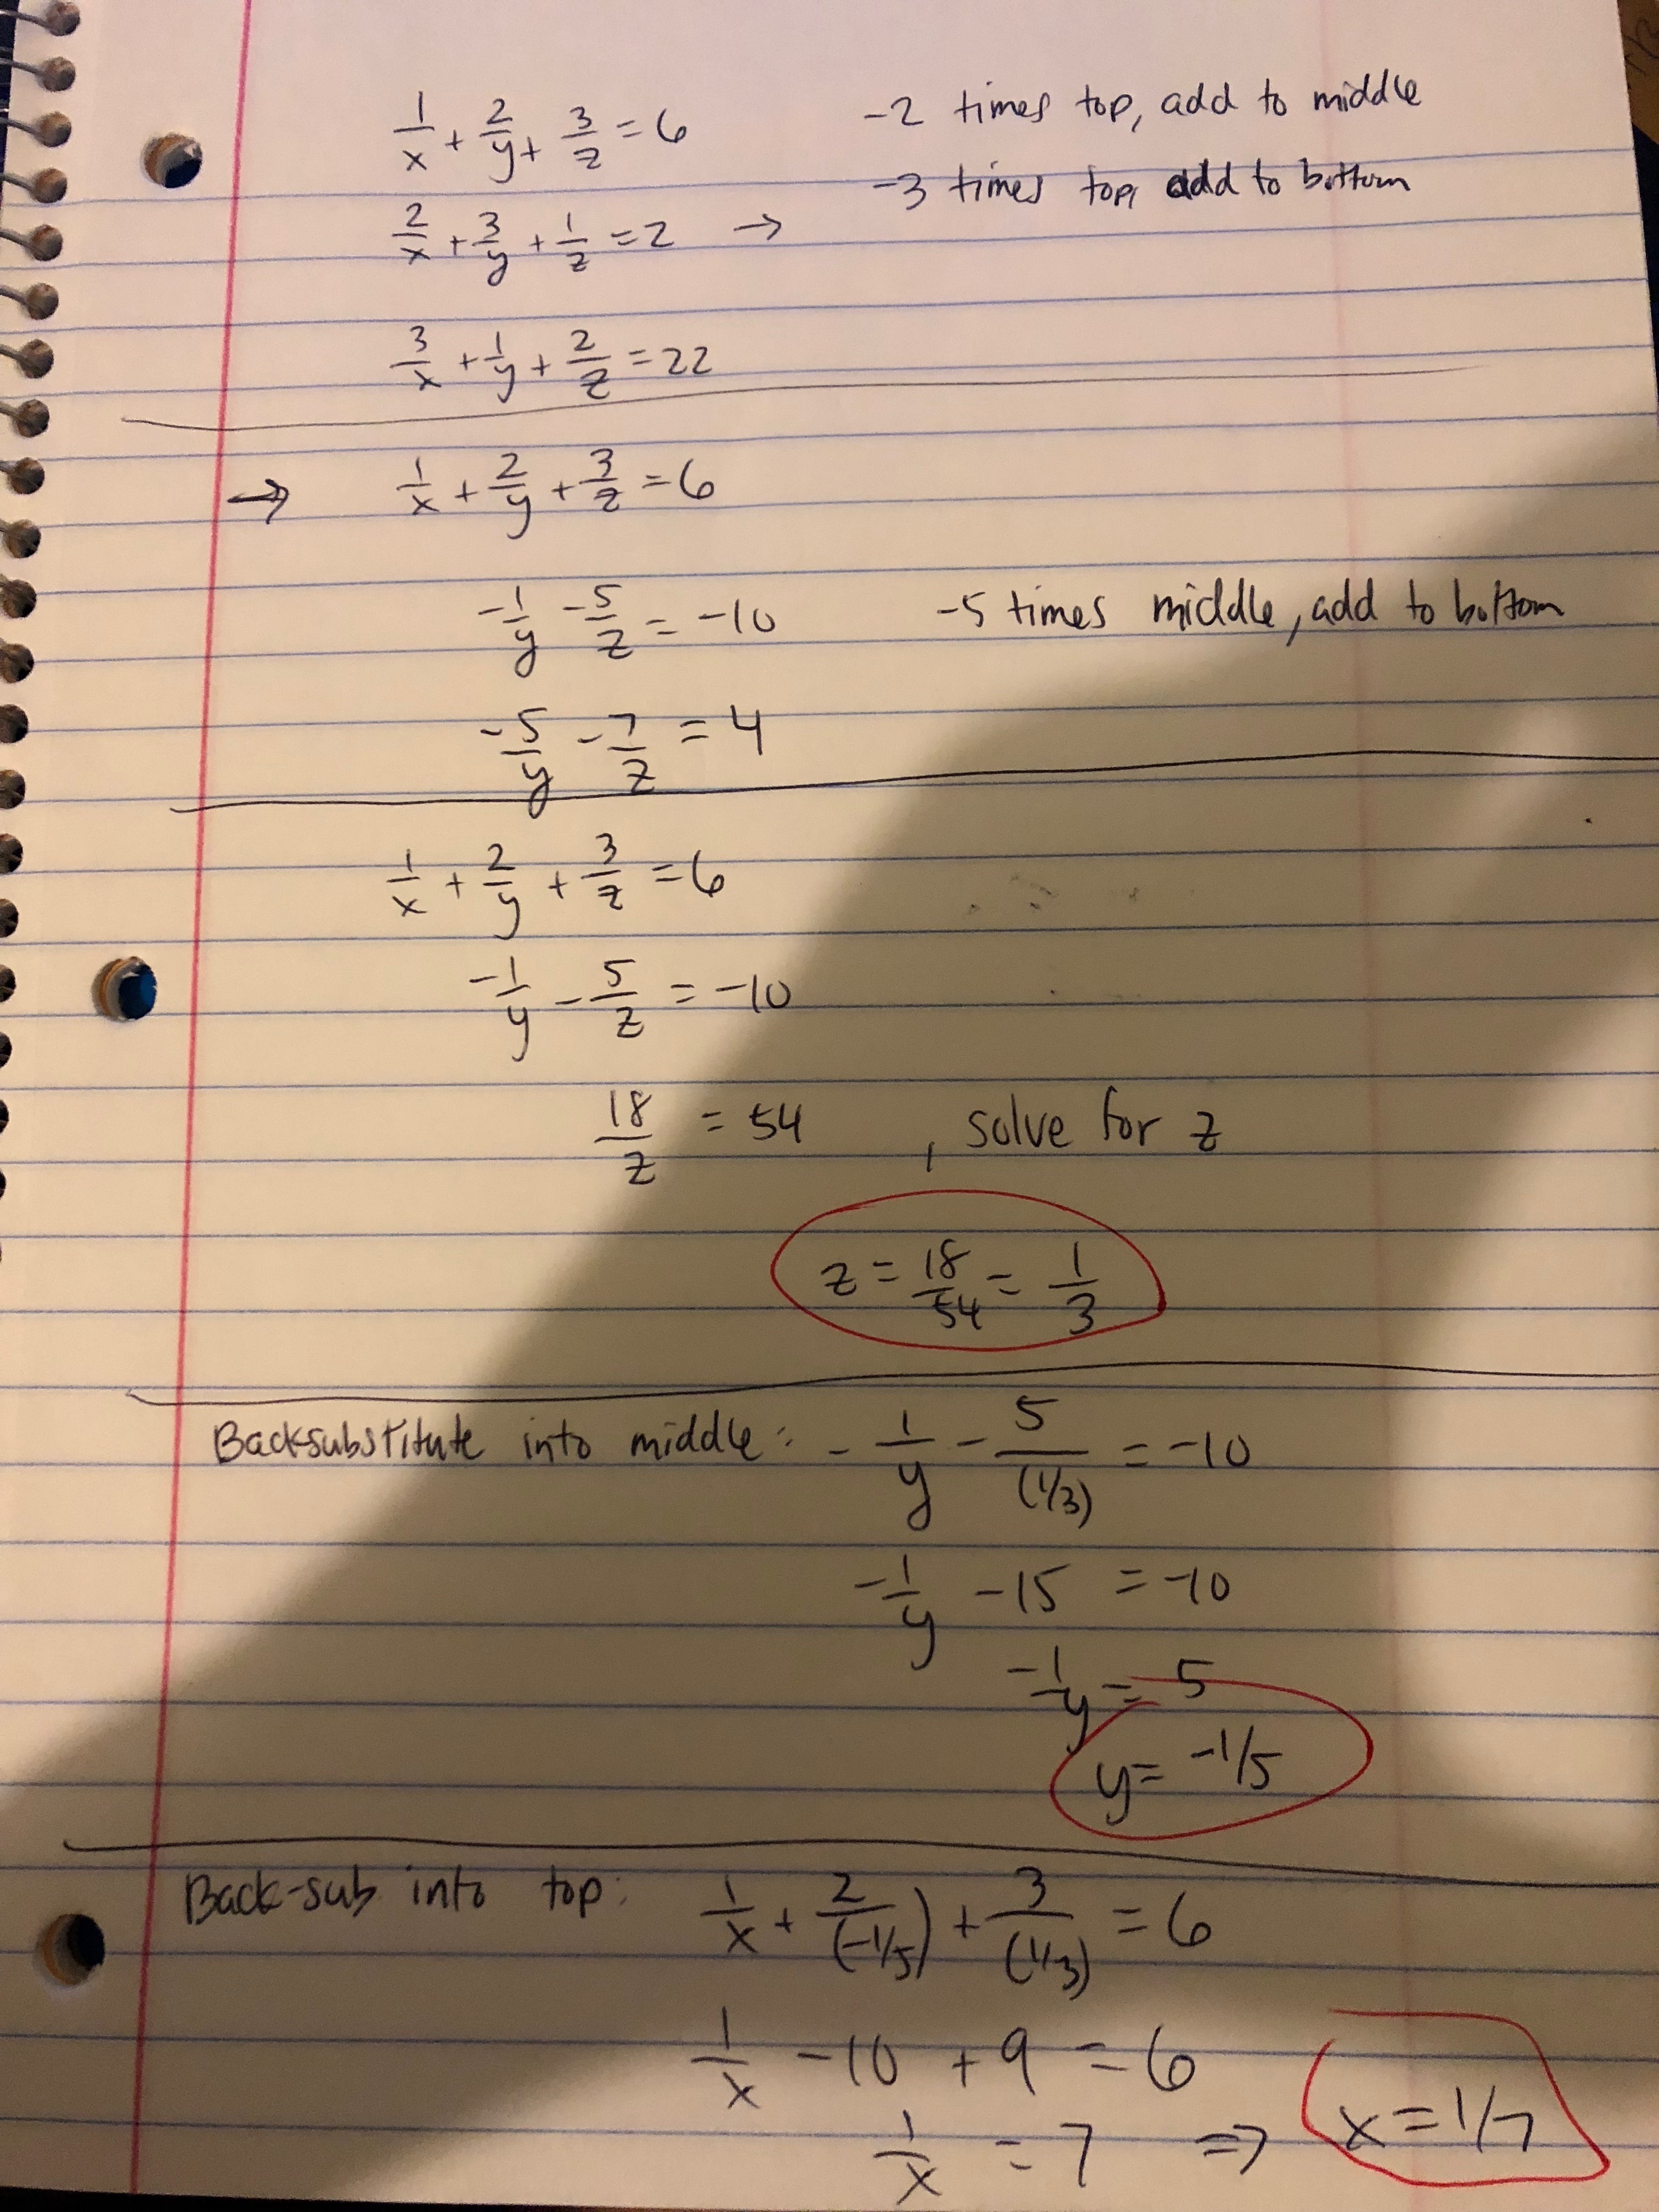 1/x + 2/y + 3/z = 6    -2 times top, add to middle
-3 times top, add to bottom
2/x + 3/y + 1/z = 2 →
3/x + 1/y + 2/z = 22
→ 1/x + 2/y + 3/z = 6
-1/y - 5/z = -10    -5 times middle, add to bottom
-5/y - 7/z = 4
1/x + 2/y + 3/z = 6
-1/y - 5/z = -10
18/z = 54 , solve for z
z = 18/54 = 1/3
Backsubstitute into middle: - 1/y - 5/(1/3) = -10
-1/y - 15 = -10
-1/y = 5
y = -1/5
Back-sub into top: 1/x + 2/(-1/5) + 3/(1/3) = 6
1/x - 10 + 9 = 6
1/x = 7 ⇒ x = 1/7